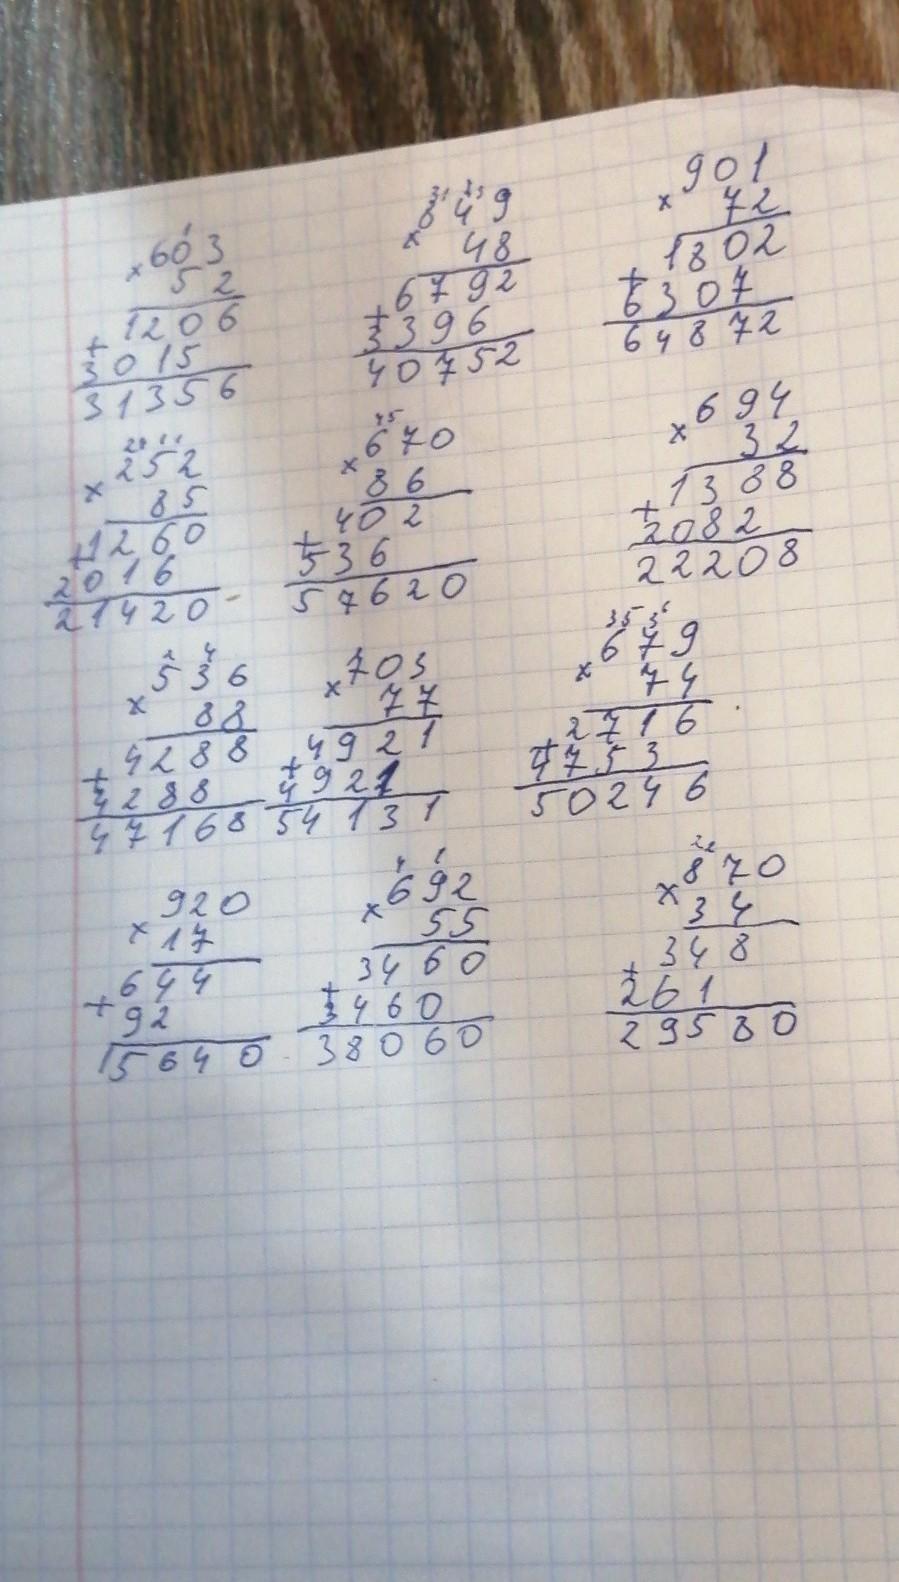 603
× 52
1206
+
3015
31356
849
× 48
6792
+
3396
40752
901
× 72
1802
+
6307
64872
252
× 85
1260
+
2016
21420
45
670
× 86
402
+
536
57620
694
× 32
1388
+
2082
22208
2 4
536
× 88
4288
+
4288
47168
703
× 77
4921
+
4921
54131
679
× 74
2716
+
4753
50246
920
× 17
644
+
92
15640
692
× 55
3460
+
3460
38060
870
× 34
348
+
261
29580